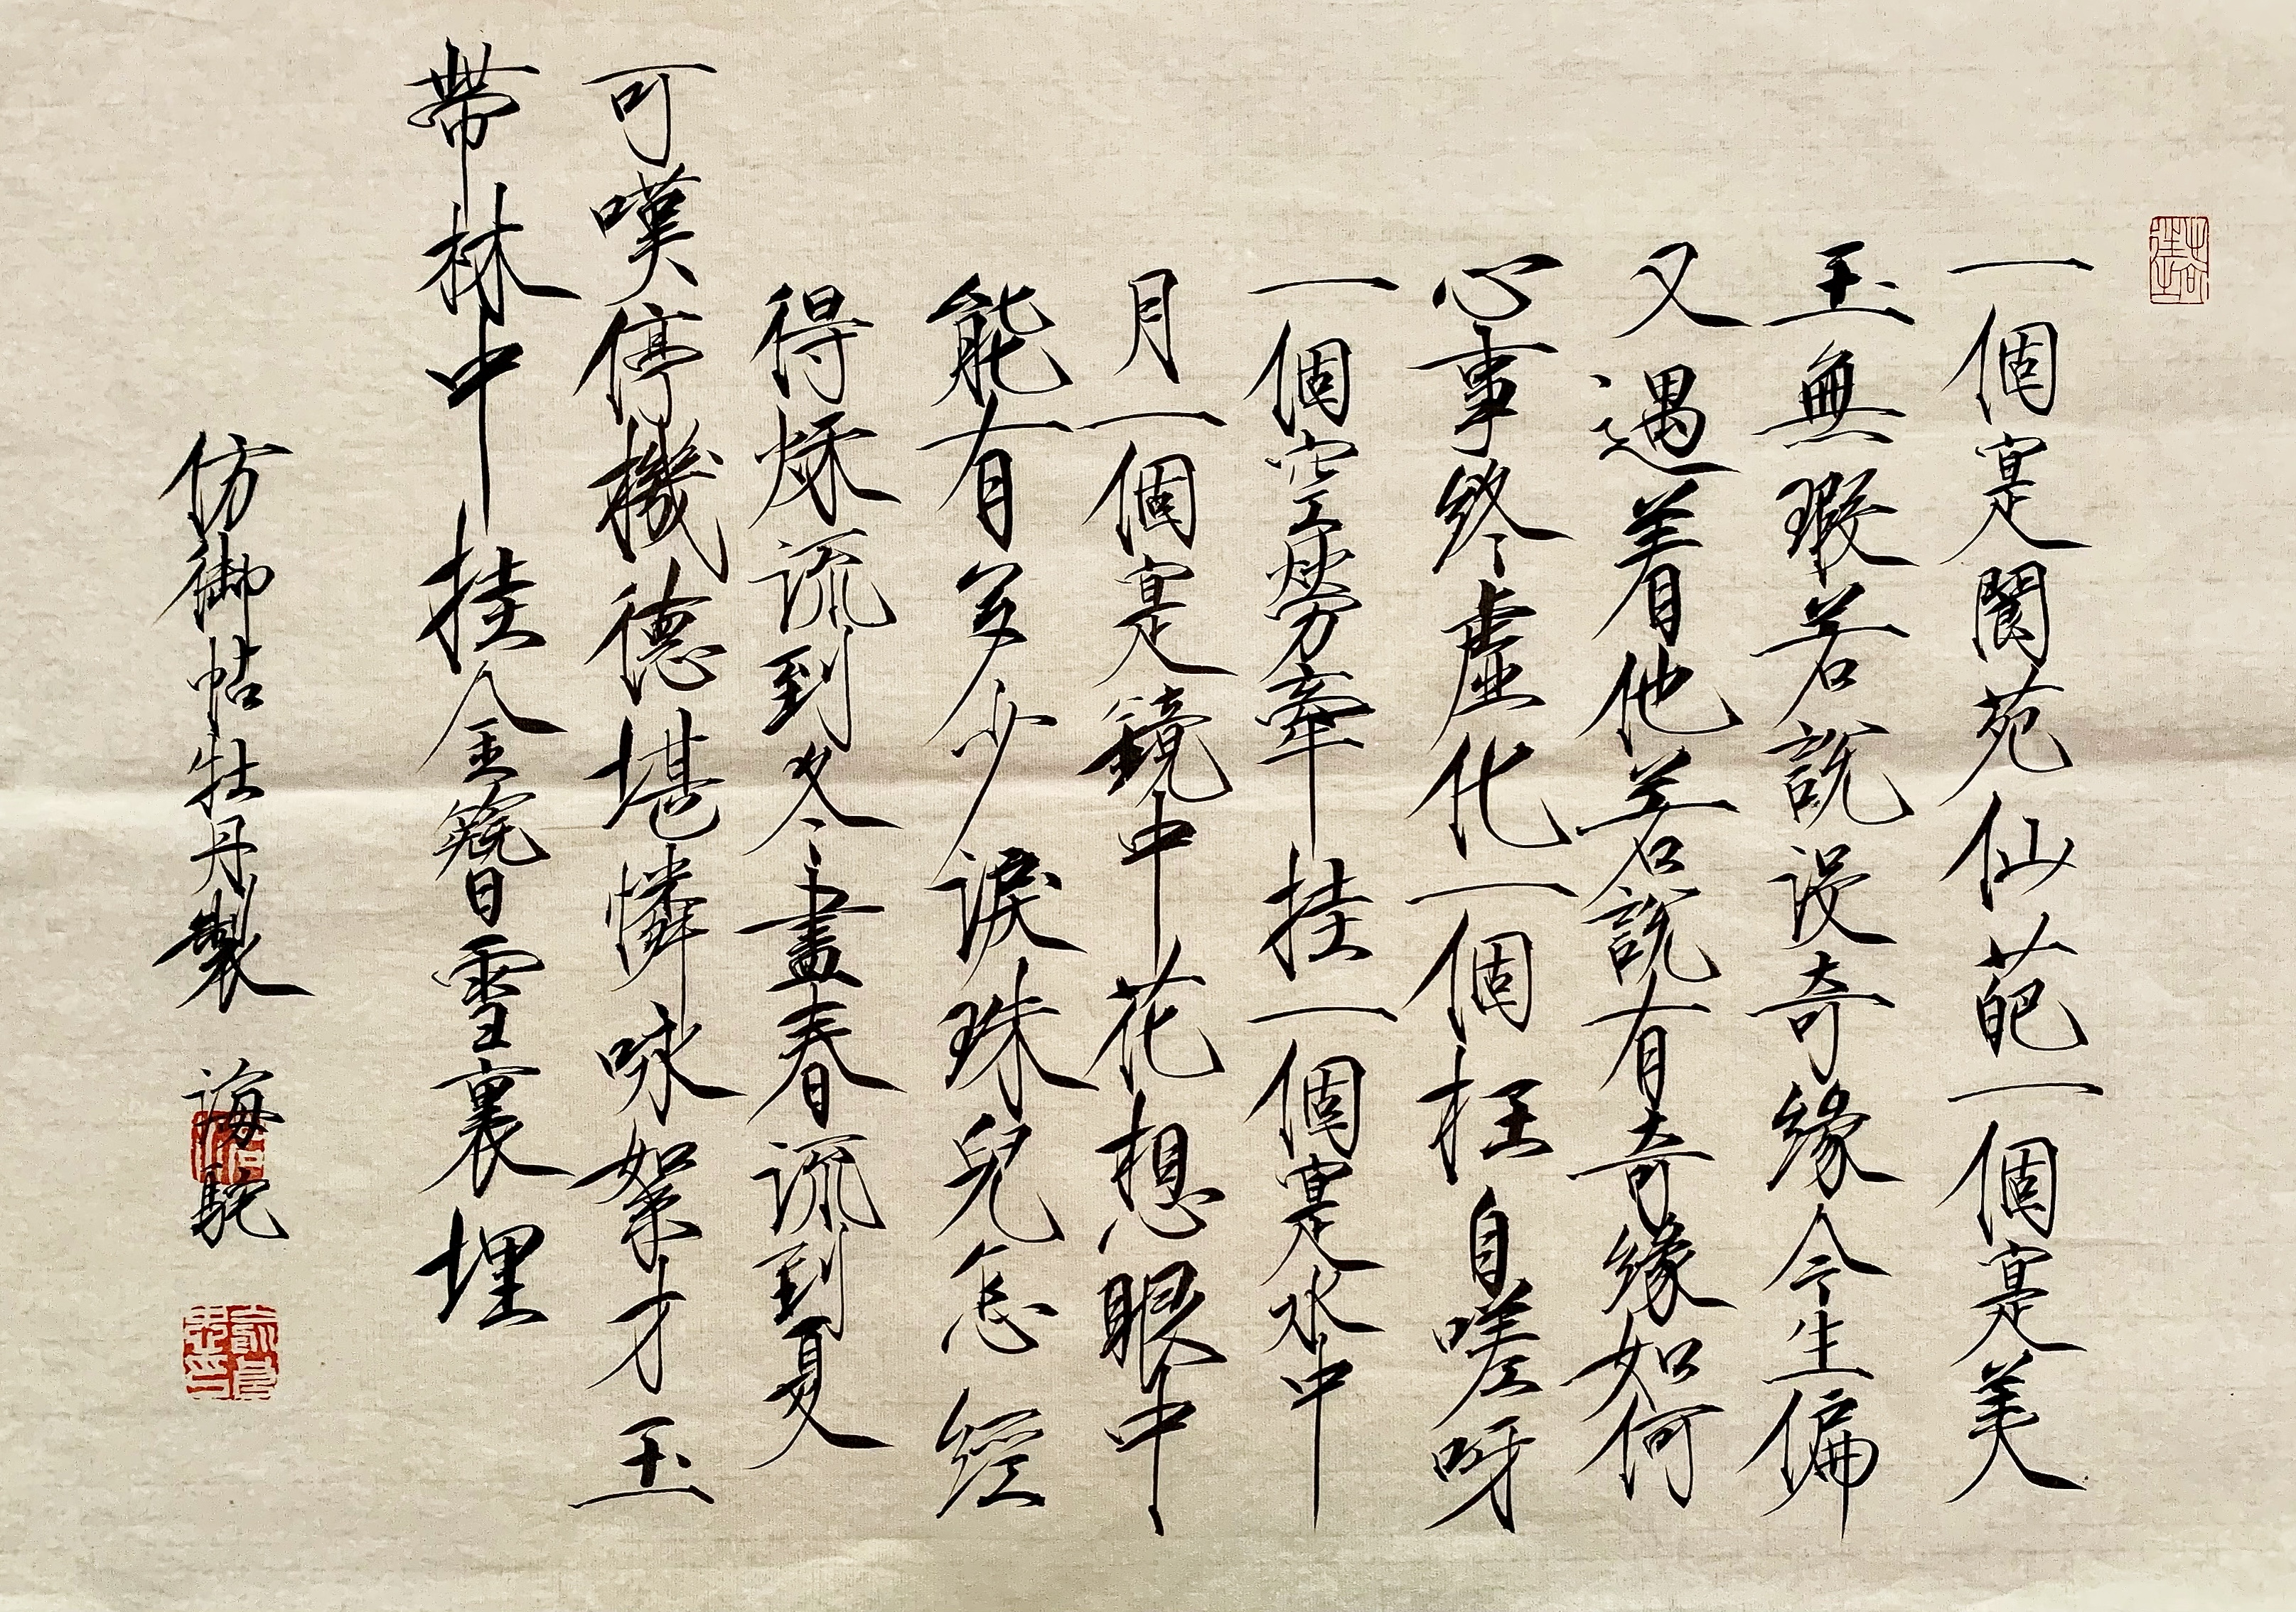 一個寔是閬苑仙葩一個寔是美
玉無瑕若說沒奇緣今生偏
又遇着他若說有奇緣如何
心事終虛化一個枉自嗟呀
一個空勞牽挂一個寔是水中
月一個寔是鏡中花想眼中
能有多少淚珠兒怎經
得秌流到冬盡春流到夏
可嘆停機德堪憐咏絮才玉
帶林中挂金簪雪裏埋
仿御帖牡丹製